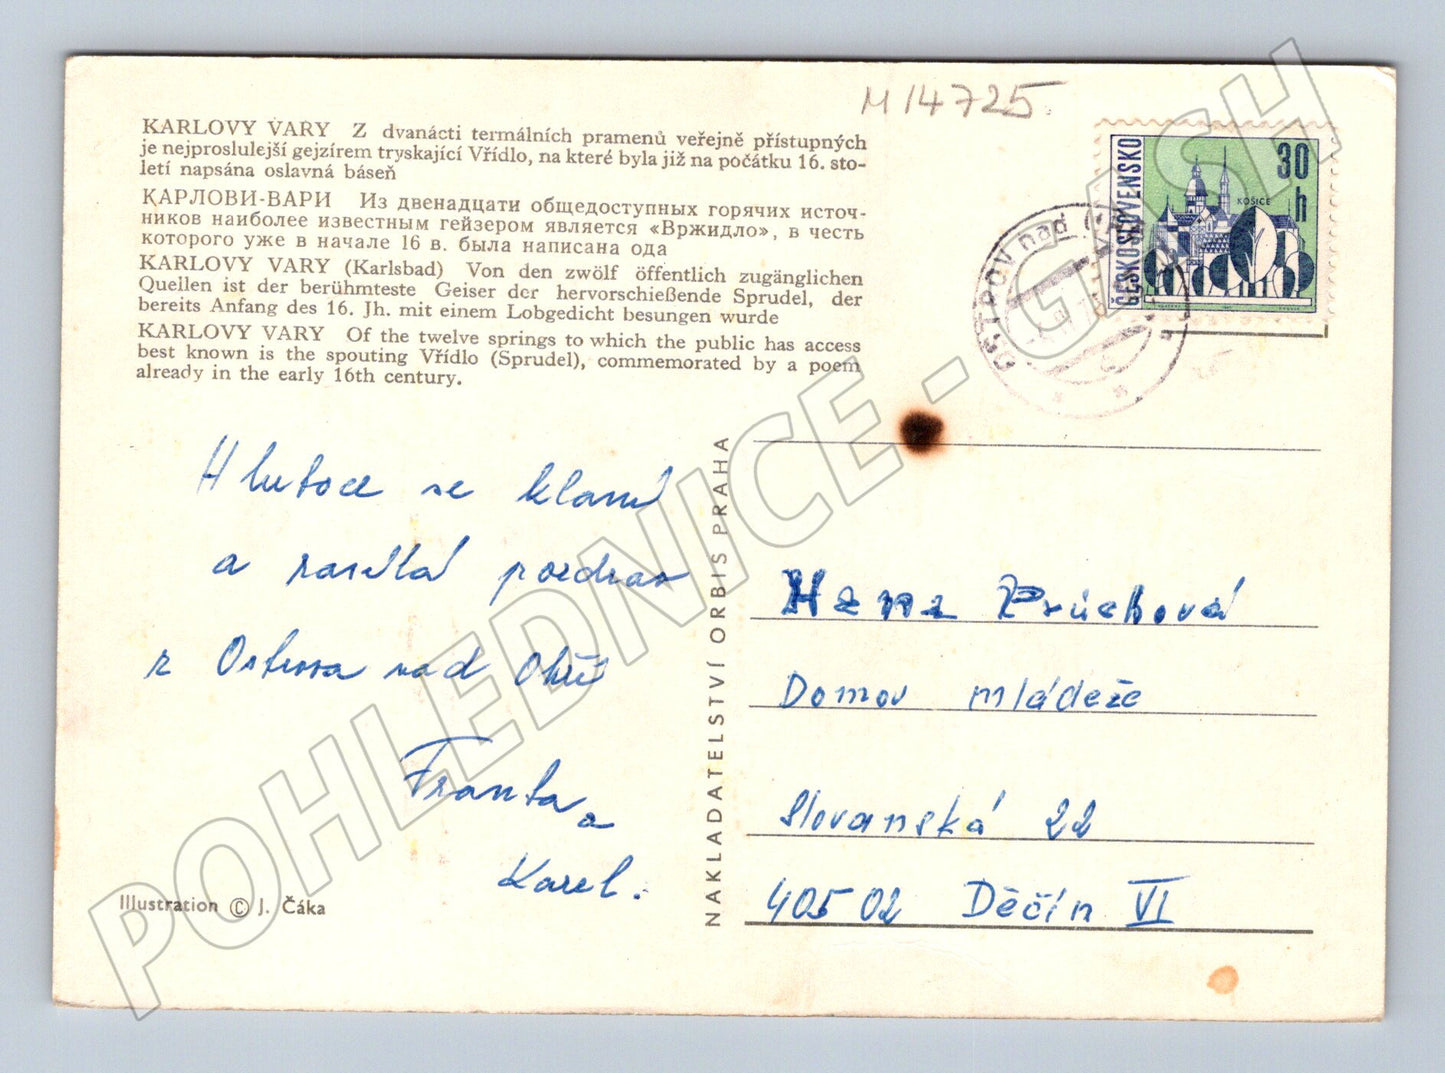 M 14725
KARLOVY VARY Z dvanácti termálních pramenů veřejně přístupných
je nejproslulejší gejzírem tryskající Vřídlo, na které byla již na počátku 16. sto-
letí napsána oslavná báseň
КАРЛОВИ-ВАРИ Из двенадцати общедоступных горячих источ-
ников наиболее известным гейзером является «Вржидло», в честь
которого уже в начале 16 в. была написана ода
KARLOVY VARY (Karlsbad) Von den zwölf öffentlich zugänglichen
Quellen ist der berühmteste Geiser der hervorschießende Sprudel, der
bereits Anfang des 16. Jh. mit einem Lobgedicht besungen wurde
KARLOVY VARY Of the twelve springs to which the public has access
best known is the spouting Vřídlo (Sprudel), commemorated by a poem
already in the early 16th century.
ČESKOSLOVENSKO
30 h
KOŠICE
OSTROV nad
Hluboce se klaní
a zasílá pozdrav
z Ostrova nad Ohří
Franta a
Karel.
Illustration © J. Čáka
NAKLADATELSTVÍ ORBIS PRAHA
Hana Průchová
Domov mládeže
Slovanská 22
40502 Děčín VI
POHLEDNICE - GASH